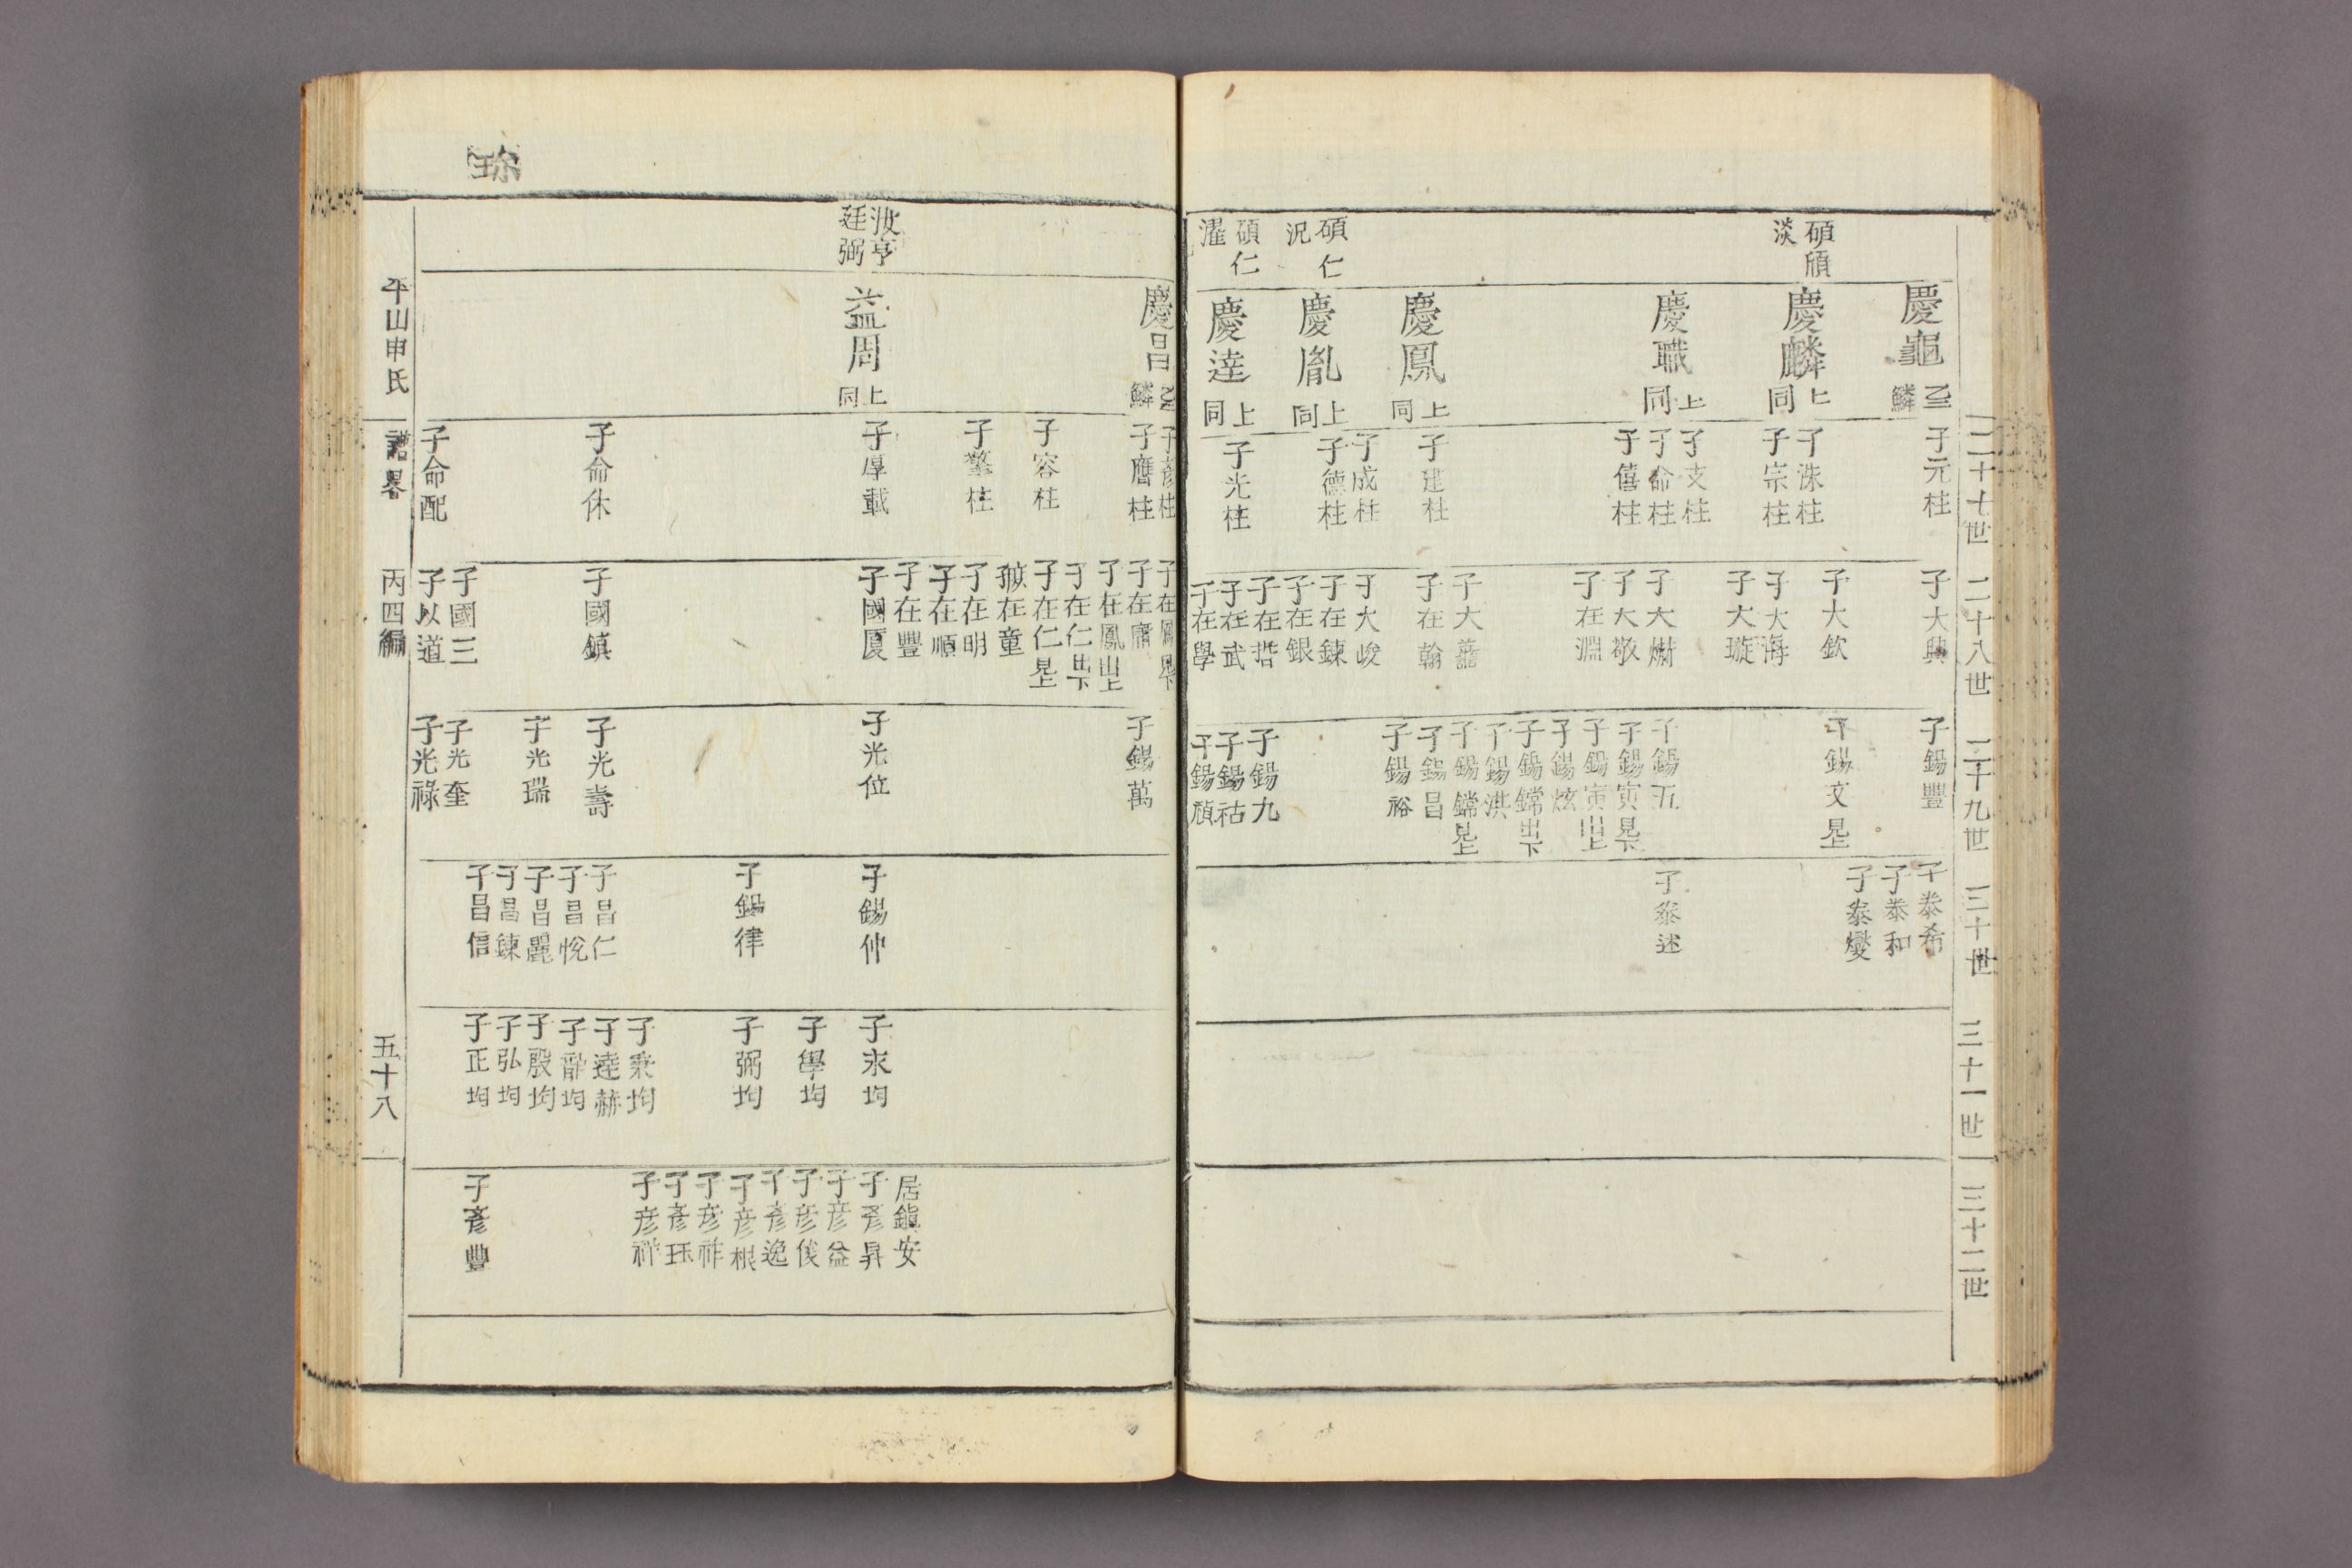 二十七世
二十八世
二十九世
三十世
三十一世
三十二世
碩頎
淡
碩仁
況
碩仁
濯
慶龜
鱗
慶麟
上同
慶職
上同
慶鳳
上同
慶胤
上同
慶達
上同
子元柱
子洙柱
子宗柱
子支柱
子命柱
子僖柱
子建柱
子成柱
子德柱
子光柱
子大興
子大欽
子大海
子大璇
子大爀
子大敬
子在淵
子大
子在翰
子大峻
子在鍊
子在銀
子在哲
子在武
子在學
子錫豐
子錫文見上
子錫五
子錫寅見下
子錫寅出上
子錫炫
子錫鏛出下
子錫淇
子錫鏛見上
子錫昌
子錫裕
子錫九
子錫祜
子錫禎
子泰希
子泰和
子泰燮
子泰述
廷弼
慶昌
鱗
益周
上同
子彥柱
子膺柱
子容柱
子擎柱
子厚載
子命休
子命配
子在鳳見下
子在庸
子在鳳出上
子在仁出下
子在仁見上
在童
子在明
子在順
子在豐
子國厦
子國鎮
子國三
子以道
子錫萬
子光位
子光壽
子光瑞
子光奎
子光祿
子錫仲
子錫律
子昌仁
子昌悅
子昌麗
子昌鍊
子昌信
子永均
子學均
子弼均
子秉均
子達赫
子韶均
子殷均
子弘均
子正均
居鎭安
子彥昇
子彥益
子彥俊
子彥逸
子彥根
子彥祚
子彥珏
子彥祥
子彥豐
平山申氏
譜畧
丙四編
五十八
珎